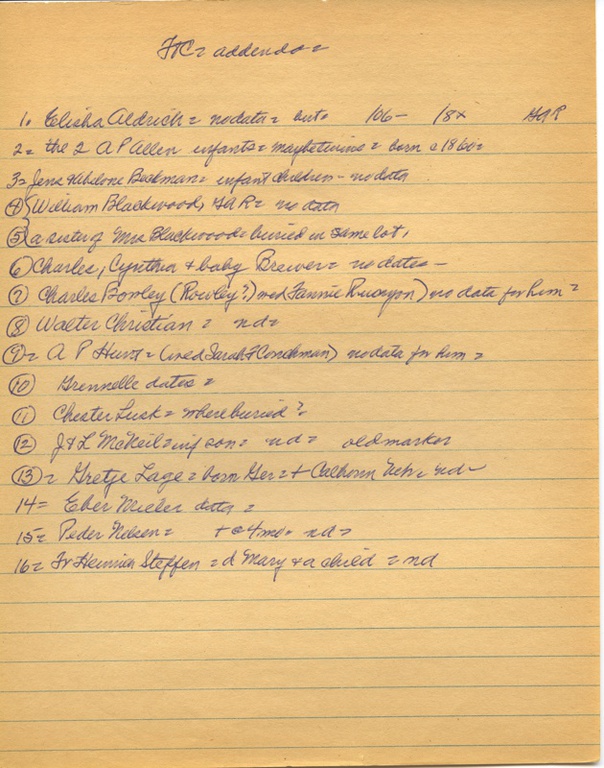 FTC = addenda =
1. Elisha Aldrich = no data = but = 106 - 18x GAR
2 = the 2 A P Allen infants = maybe twins = born c 1860 =
3 = Jens & Abelone Beekman = infant children - no data
④ William Blackwood, GAR = no data
⑤ a sister of Mrs Blackwood = buried in same lot,
⑥ Charles, Cynthia & baby Brewer = no dates -
⑦ Charles Bowley (Rowley?) wed Fannie Runyon) no data for him =
⑧ Walter Christian = nd =
⑨ = A P Hunt = (wed Sarah F Conchman) no data for him =
⑩ Grennelle dates =
⑪ Chester Lusk = where buried?
⑫ J & L McKeil = inf son = nd = old marker
⑬ = Gretje Lage = born Ger = + Calhoun Neb = nd -
14 = Eber data =
15 = Peder Nelsen = + c 4 mo = nd =
16 = Fr Heinrich Steffen = d Mary & a child = nd